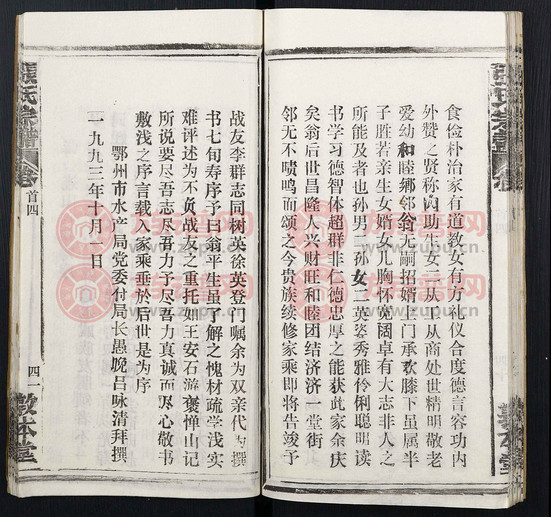 食俭朴治家有道教女有方礼仪合度德言容功内
外赞之贤称内助生女三从下从商处世精明敬老
爱幼和睦乡邻翁无嗣招婿上门承欢膝下虽属半
子胜若亲生女婿女儿胸怀宽阔卓有大志非人之
所能及者也孙男二孙女二英姿秀雅伶俐聪明读
书学习德智体超群非仁德忠厚之能获此家余庆
矣翁后世昌隆人兴财旺和睦团结济济一堂街
邻无不啧鸣而颂之今贵族续修家乘即将告竣予
战友李群志同树英徐英登门嘱余为双亲代为撰
书七旬寿序予曰翁平生虽了解之愧材疏学浅实
难评述为不负战友之重托如王安石游褒禅山记
所说要尽吾志尽吾力予尽吾力真诚而尽心敬书
敷浅之序言载入家乘垂於后世是为序
鄂州市水产局党委付局长愚晚吕咏清拜撰
一九九三年十月一日
氏宗谱
卷首四
四一
敦本堂
族谱网
www.zupu.cn
族谱网
www.zupu.cn